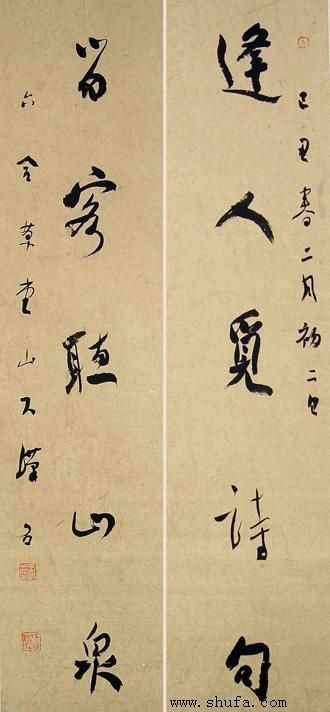 己丑春二月初二日
逢人覓詩句
留客聽山泉
草堂山
www.shufa.com